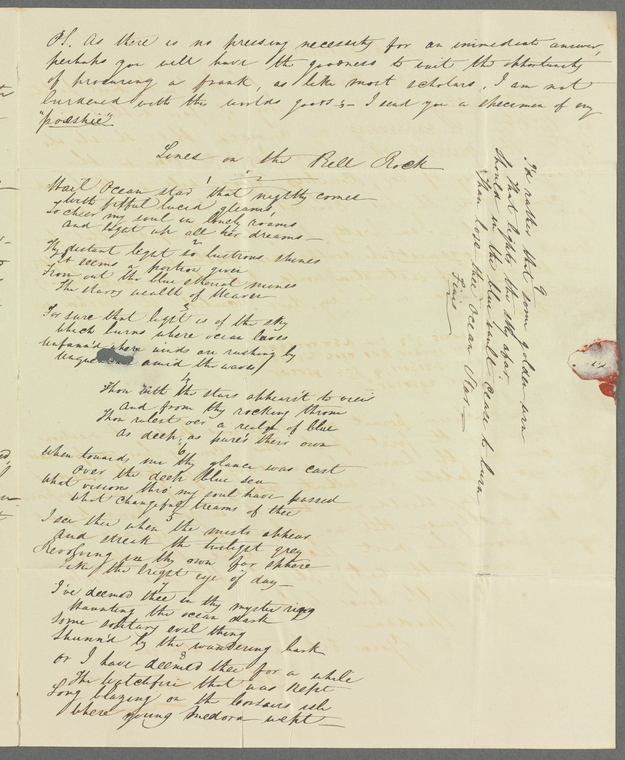 P.S. As there is no pressing necessity for an immediate answer,
perhaps you will have the goodness to wait the opportunity
of procuring a frank, as like most scholars, I am not
burdened with the worlds goods, – I send you a specimen of my
"poeshie"
Lines on the Bell Rock
1
Hail Ocean star! that nightly comes
With fitful lucid gleams,
To cheer my soul in lonely roams
and light up all her dreams –
2
Thy distant light so lustrous shines
It seems a portion given
From out the blue etherial mines
The starry wealth of Heaven
3
For sure that light is of the sky
Which burns where ocean laves
Unfann'd where winds are rushing by
amid the waves
4
Thou with the stars appear'st to view
and from thy rocking throne
Thou rulest o'er a realm of blue
As deep, as pure's their own
5
When towards me thy glance was cast
Over the deep blue sea
What visions thro' my soul have passed
What changeful dreams of thee
6
I see thee when the mists appear
and streak the twilight grey
Revolving in thy own far sphere
Like the bright eye of day –
7
I've deemed thee in thy myster
Haunting the ocean dark
Some solitary evil thing
Shunn'd by the wandering bark
8
Or I have deemed thee for a while
The watchfire that was kept
Long blazing on the Corsairs isle
Where young Medora wept –
9
I'd rather that some golden urn
That lights the sky afar
Should in the blue vault cease to burn
Than lose thee Ocean Star –
Finis